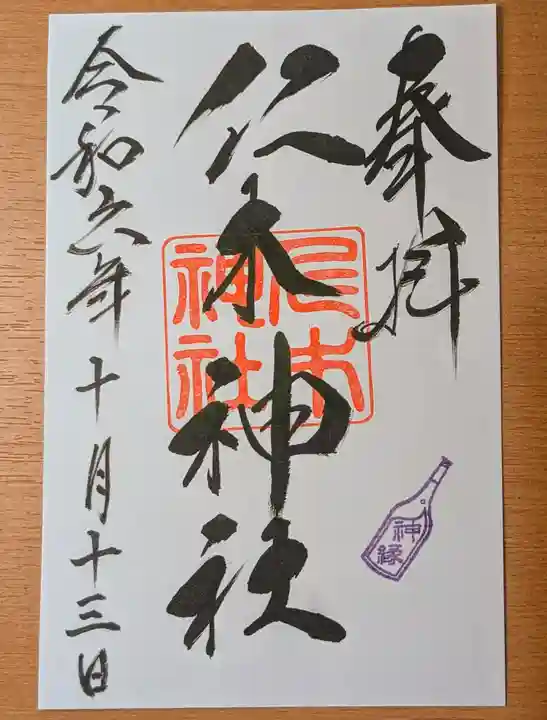 奉拝
仁木神社
仁木
神社
令和六年十月十三日
神縁